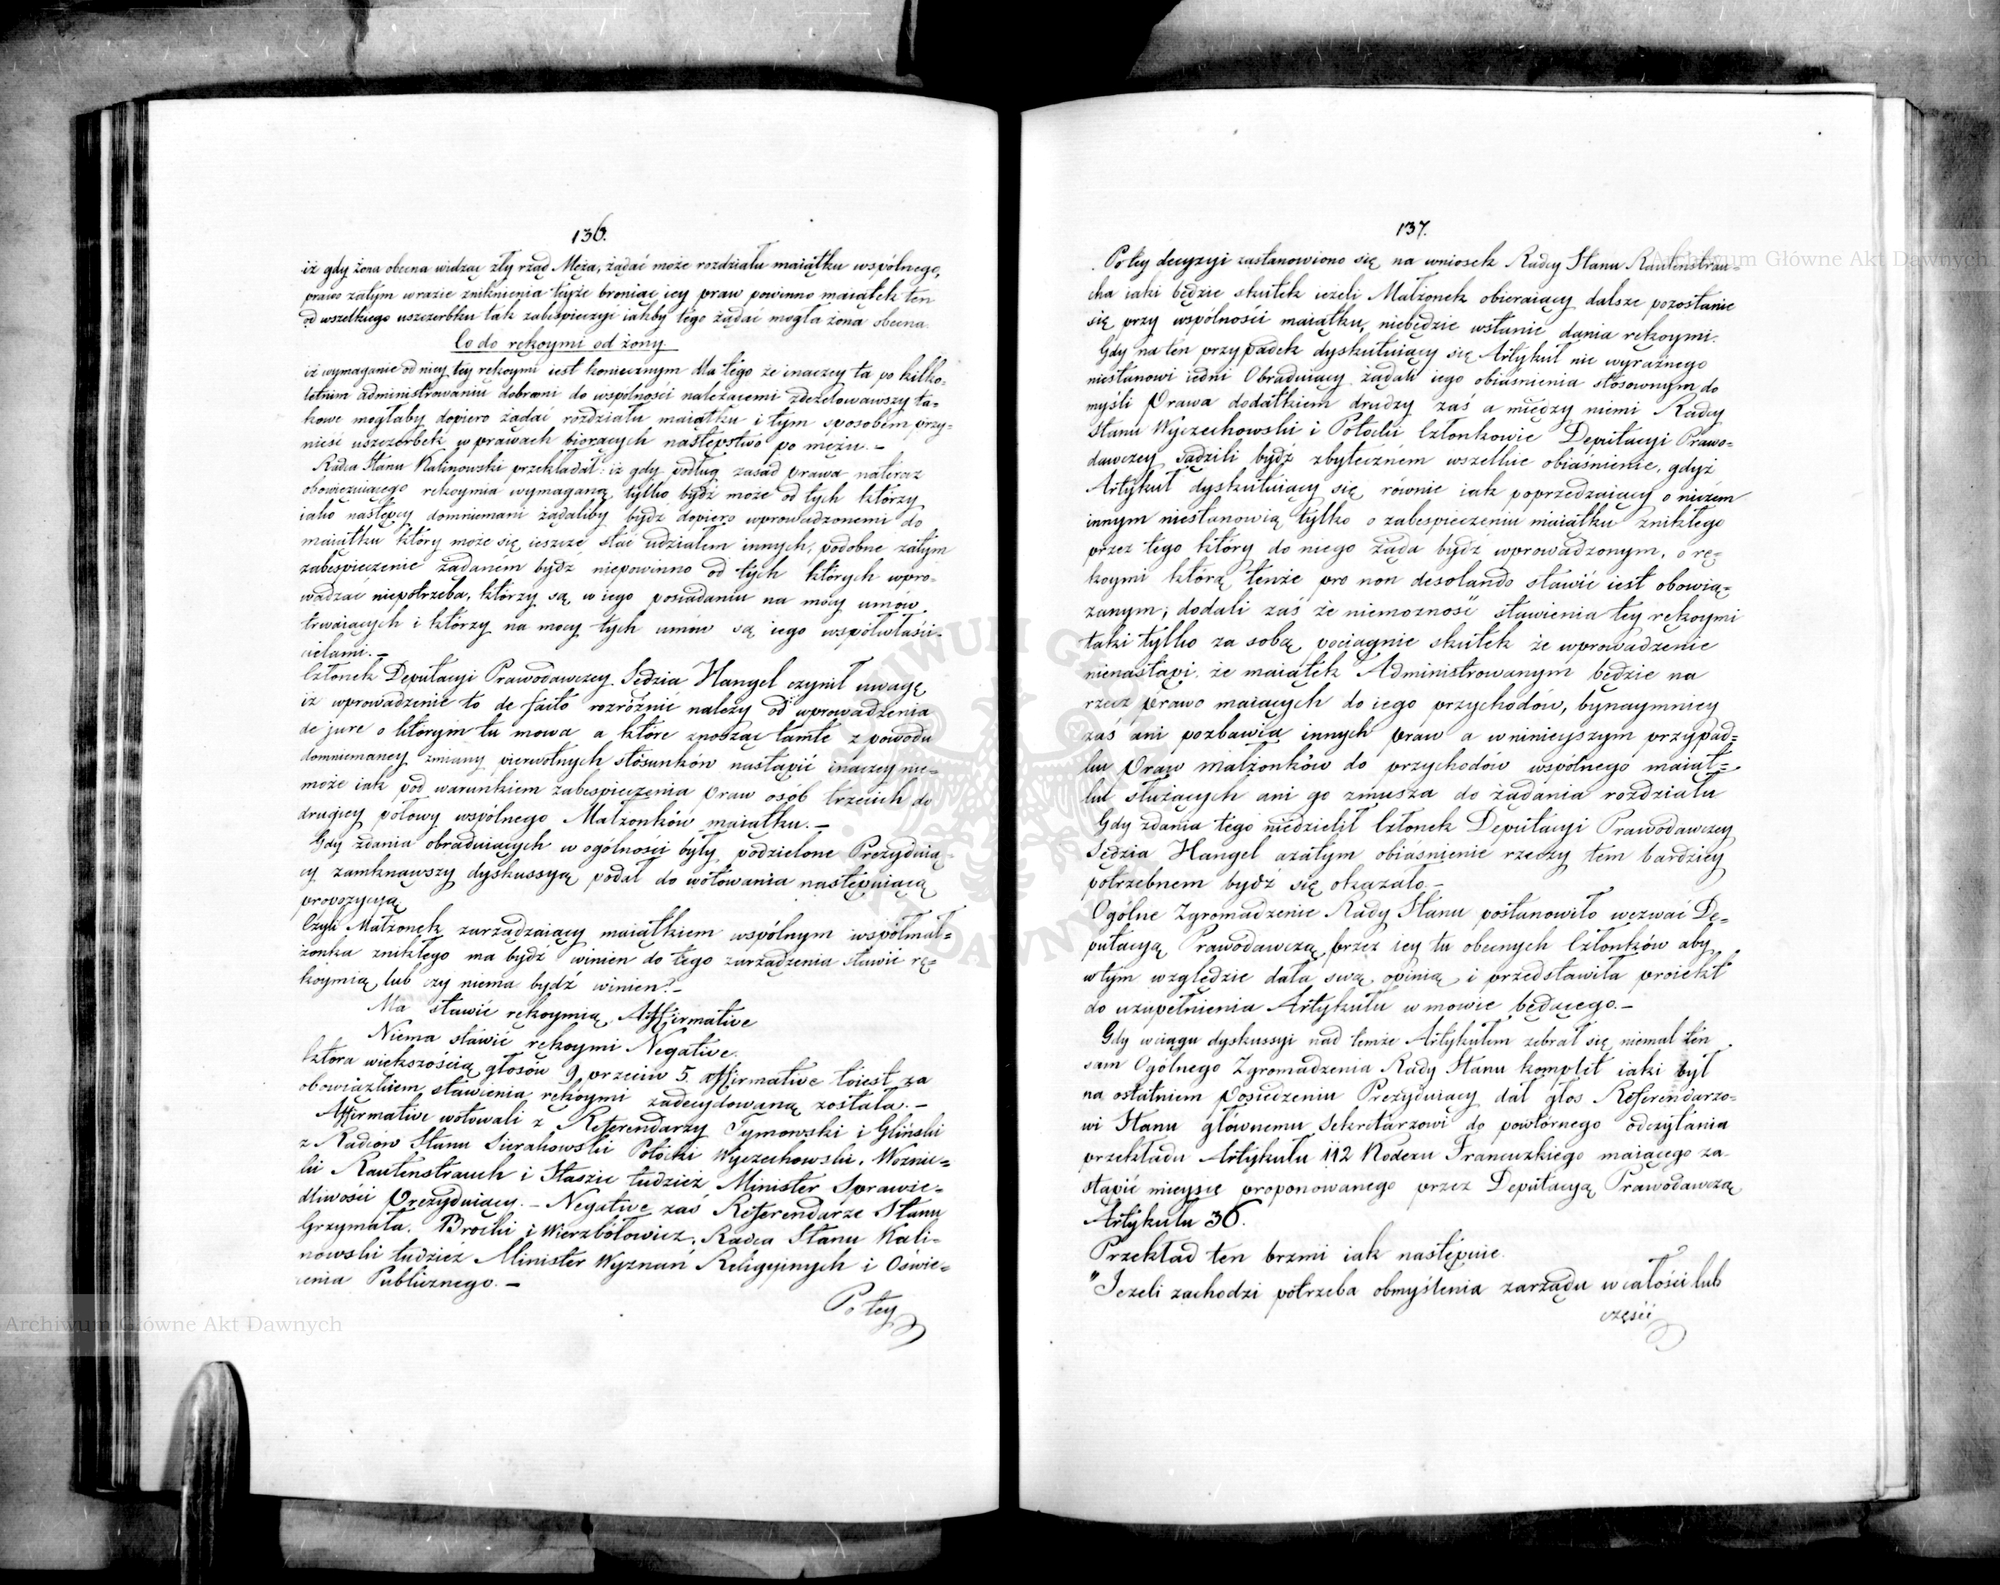 136.
iż gdy żona obecna widząc zły rząd Męża, żądać może rozdziału maiątku wspólnego,
prawo zatym wrazie zniknienia teyże broniąc iey praw powinno maiątek ten
od wszelkiego uszczerbku tak zabespieczyć iakby tego żądać mogła żona obecna.
Co do rękoymi od żony
iż wymaganie od niey tey rękoymi iest koniecznym dla tego że inaczey ta po kilko-
letnim administrowaniu dobrami do wspólności należącemi zdezelowawszy ta-
kowe mogłaby dopiero żądać rozdziału maiątku i tym sposobem przy-
nieść uszczerbek w prawach biorących następstwo po mężu. –
Radca Stanu Kalinowski przekładał: iż gdy podług zasad prawa nateraz
obowiązuiącego rękoymia wymaganą tylko bydź może od tych którzy
iako następcy domniemani żądaliby bydź dopiero wprowadzonemi do
maiątku który może się ieszcze stać udziałem innych, podobne zatym
zabespieczenie żądanem bydź niepowinno od tych których wpro-
wadzać niepotrzeba, którzy są w iego posiadaniu na mocy umów
trwaiących i którzy na mocy tych umów są iego współwłaści-
cielami. –
Członek Deputacyi Prawodawczey Sędzia Hangel czynił uwagę
iż wprowadzenie to de facto rozróżnić należy od wprowadzenia
de jure o którym tu mowa a które znosząc tamte z powodu
domniemaney zmiany pierwotnych stosunków nastąpić inaczey nie-
może iak pod warunkiem zabespieczenia praw osób trzecich do
drugiey połowy wspólnego Małżonków maiątku. –
Gdy zdania obraduiących w ogólności były podzielone Prezyduią-
cy zamknąwszy dyskussyą podał do wotowania następuiącą
propozycyą
Czyli Małżonek zarządzaiący maiątkiem wspólnym współmał-
żonka znikłego ma bydź winien do tego zarządzenia stawić rę-
koymią, lub czy niema bydź winien? –
Ma stawić rękoymią Affirmative
Niema stawić rękoymi Negative.
Która większością głosów 9 przeciw 5. affirmative to iest za
obowiązkiem stawienia rękoymi zadecydowaną została. –
Affirmative wotowali z Referendarzy Tymowski i Gliński
z Radców Stanu Sierakowski Potocki Wyczechowski, Woźnic-
ki Rautenstrauch i Staszic tudzież Minister Sprawie-
dliwości Prezyduiący. – Negative zaś Referendarze Stanu
Grzymała, Brocki i Wierzbołowicz, Radca Stanu Kali-
nowski tudzież Minister Wyznań Religijnych i Oświe-
cenia Publicznego. –
Po tey
137.
Po tey decyzyi zastanowiono się na wniosek Radcy Stanu Rautenstrau-
cha iaki będzie skutek ieżeli Małżonek obieraiący dalsze pozostanie
się przy wspólności maiątku, niebędzie wstanie dania rękoymi.
Gdy na ten przypadek dyskutuiący się Artykuł nic wyraźnego
niestanowi iedni Obraduiący żądali iego obiaśnienia stosownym do
myśli Prawa dodatkiem drudzy zaś a między niemi Radcy
Stanu Wyczechowski i Potocki Członkowie Deputacyi Prawo-
dawczey sądzili bydź zbytecznem wszelkie obiaśnienie, gdyż
Artykuł dyskutuiący się równie iak poprzedzaiący o niczem
innym niestanowią tylko o zabespieczeniu maiątku znikłego
przez tego który do niego żąda bydź wprowadzonym, o rę-
koymi którą tenże pro non desolando stawić iest obowią-
zanym; dodali zaś że niemożność stawienia tey rękoymi
taki tylko za sobą pociągnie skutek że wprowadzenie
nienastąpi, że maiątek Administrowanym będzie na
rzecz prawo maiących do iego przychodów, bynaymniey
zaś ani pozbawia innych praw a w ninieyszym przypad-
ku Praw małżonków do przychodów wspólnego maiąt-
ku służących ani go zmusza do żądania rozdziału
Gdy zdania tego niedzielił Członek Deputacyi Prawodawczey
Sędzia Hangel a zatym obiaśnienie rzeczy tem bardziey
potrzebnem bydź się okazało. –
Ogólne Zgromadzenie Rady Stanu postanowiło wezwać De-
putacyą Prawodawczą przez iey tu obecnych Członków aby
w tym względzie dała swą opinią i przedstawiła proiekt
do uzupełnienia Artykułu w mowie będącego. –
Gdy w ciągu dyskussyi nad temże Artykułem zebrał się niemal ten
sam Ogólnego Zgromadzenia Rady Stanu komplet iaki był
na ostatniem Posiedzeniu Prezyduiący dał głos Referendarzo-
wi Stanu głównemu Sekretarzowi do powtórnego odczytania
przekładu Artykułu 112 Kodexu Francuzkiego maiącego za-
stąpić mieysce proponowanego przez Deputacyą Prawodawczą
Artykułu 36.
Przekład ten brzmi iak następuie.
"Ieżeli zachodzi potrzeba obmyślenia zarządu w całości lub
części
Archiwum Główne Akt Dawnych
Archiwum Główne Akt Dawnych